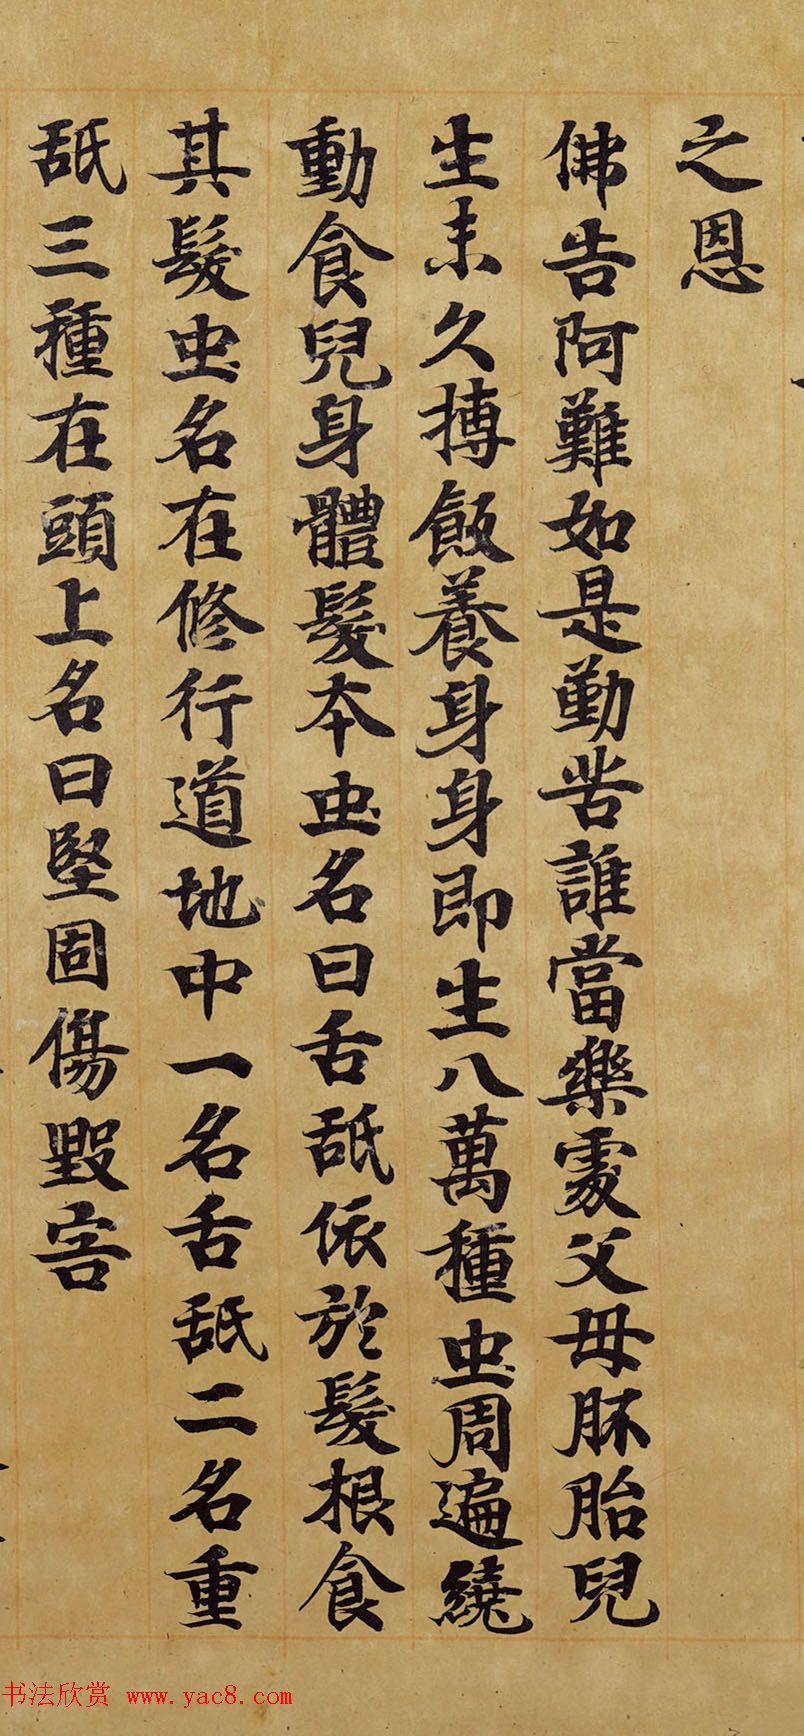 之恩
佛告阿難如是勤苦誰當樂處父母胚胎兒
生未久搏飯養身身即生八萬種虫周遍繞
動食兒身體髮本虫名曰舌舐依於髮根食
其髮虫名在修行道地中一名舌舐二名重
舐三種在頭上名曰堅固傷毀害
书法欣赏 www.yac8.com